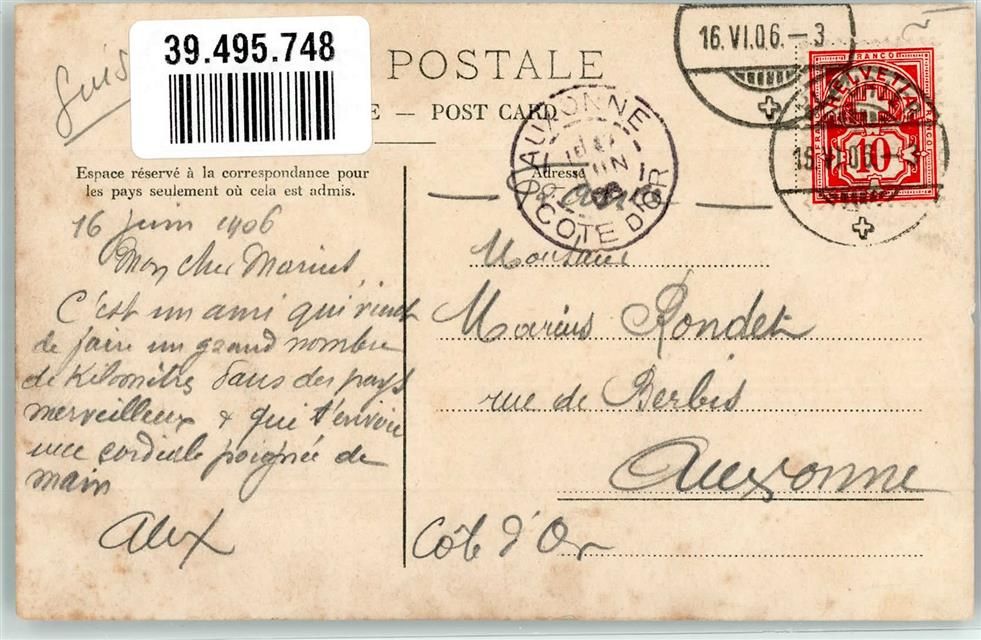 39.495.748
POSTALE
E — POST CARD
Espace réservé à la correspondance pour
les pays seulement où cela est admis.
Adresse
16 Juin 1906
Mon cher Marius
C'est un ami qui vient
de faire un grand nombre
de Kilomètres dans des pays
merveilleux & qui t'envoie
une cordiale poignée de
main
Alex
Monsieur
Marius Rondet
rue de Berbis
Auxonne
Côte d'Or
16.VI.06.–3
16.VI.06.–3
AUXONNE
JUIN
COTE D'OR
FRANCO
HELVETIA
FRANCO
FRANCO
10